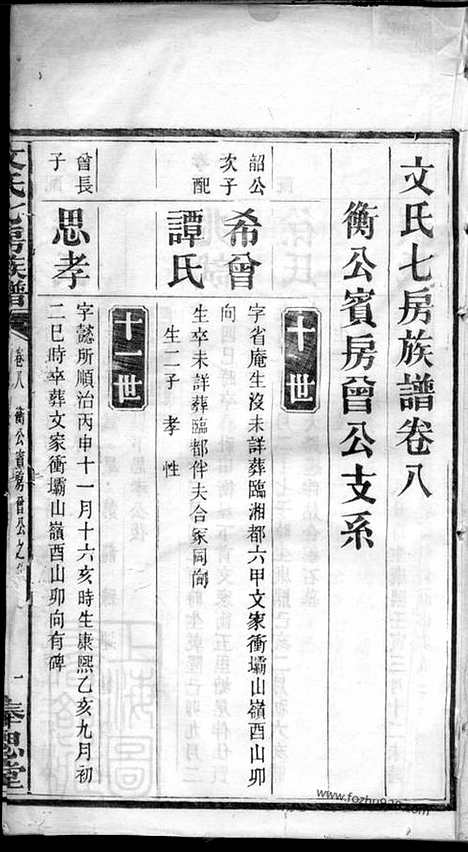 文氏七房族譜卷八
衡公賓房曾公支系
十世
韶公次子
希曾
字省庵生沒未詳葬臨湘都六甲文家衝壩山嶺酉山卯
向
孝配
譚氏
生卒未詳葬臨都伴夫合冢同向
生二子 孝 性
十一世
曾長子
思孝
字懿所順治丙申十一月十六亥時生康熙乙亥九月初
二巳時卒葬文家衝壩山嶺酉山卯向有碑
文氏七房族譜
卷八 衡公賓房曾公之
一
奉思堂
上海圖
www.fozhu920.com